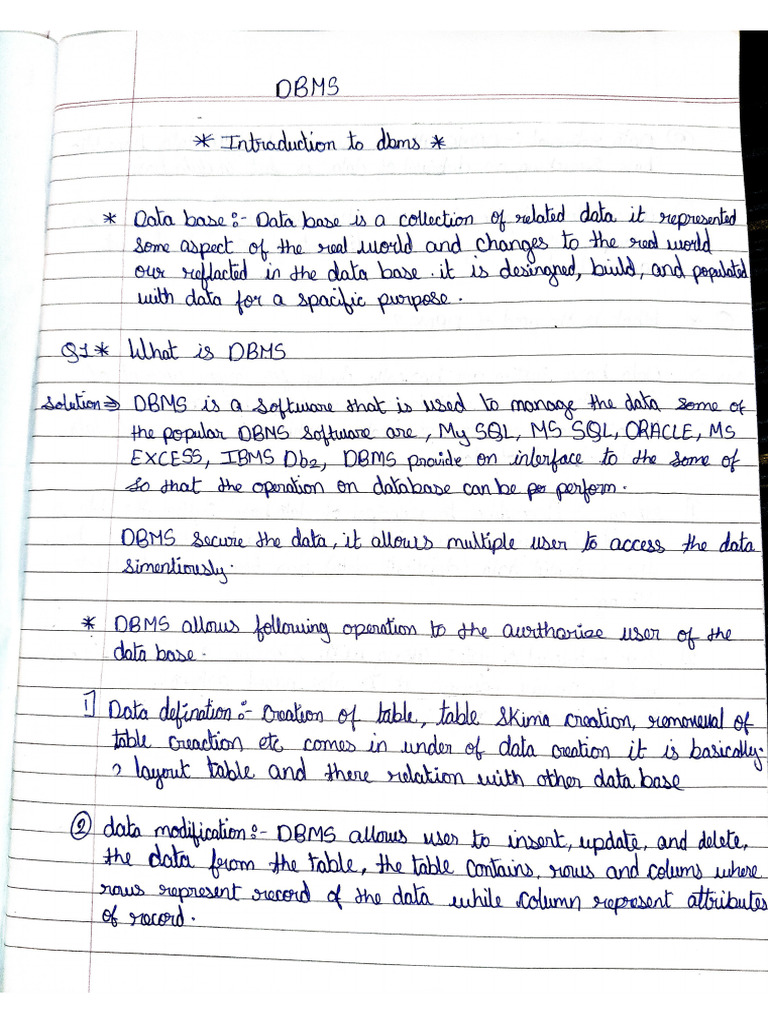 DBMS
* Intraduction to dbms *
* Data base :- Data base is a collection of related data it represented
some aspect of the real world and changes to the real world
our reflacted in the data base. it is desingned, build, and populated
with data for a spacific purpose.
Q1 * What is DBMS
Solution ⇒ DBMS is a software that is used to manage the data some of
the popular DBMS software are, My SQL, MS SQL, ORACLE, MS
EXCESS, IBMS Db2, DBMS provide on interface to the some of
so that the operation on database can be perform.
DBMS secure the data, it allows multiple user to access the data
simentiously.
* DBMS allows following operation to the aurtharize user of the
data base.
1] Data defination :- Creation of table, table skima creation, removeual of
table creaction etc comes in under of data creation it is basically
layout table and there relation with other data base
② data modification :- DBMS allows user to insert, update, and delete,
the data from the table, the table contains, rows and colums where
rows represent record of the data while column represent attributes
of record.